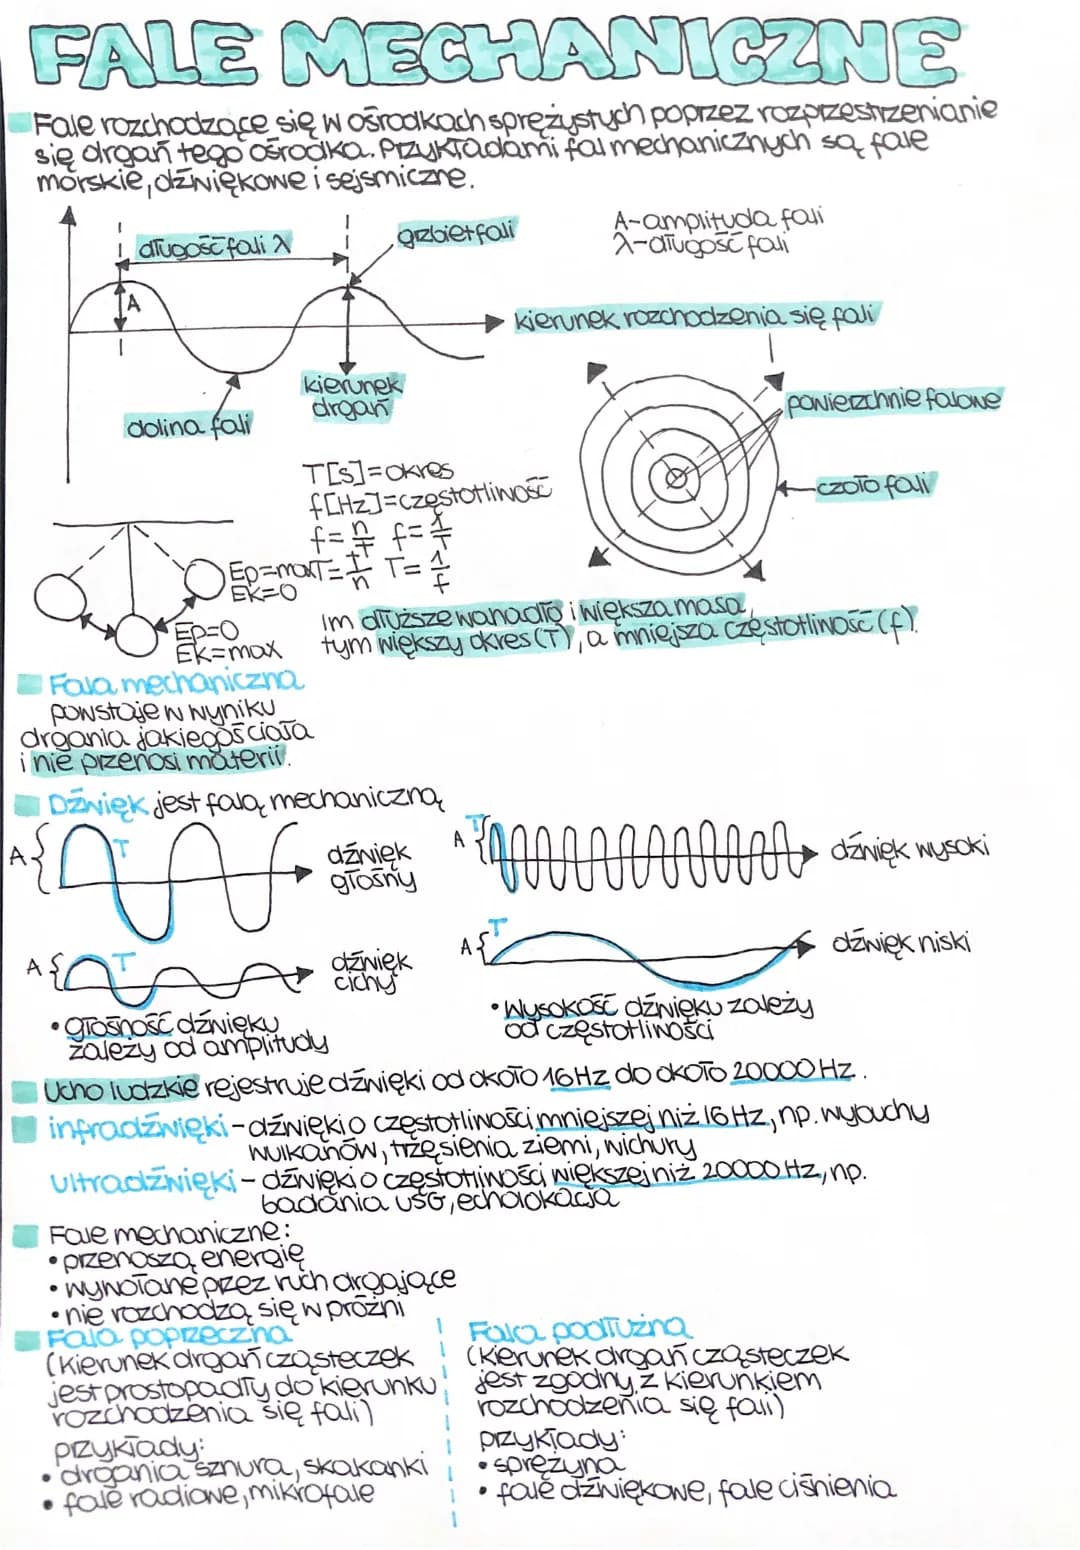 FALE MECHANICZNE
Fale rozchodzące się w ośrodkach sprężystych poprzez rozprzestrzenianie
się drgań tego ośrodka. Przykładami fal mechanicznych są fale
morskie, dźwiękowe i sejsmiczne.
długość fali λ
grzbiet fali
A-amplituda fali
λ-długość fali
A
kierunek rozchodzenia się fali
kierunek
drgań
dolina fali
powierzchnie falowe
czoło fali
T[s]=okres
f[Hz]=częstotliwość
f=n/t f=1/T
Ep=max T=t/n T=1/f
Ek=0
Ep=0
Ek=max
Im dłuższe wahadło i większa masa,
tym większy okres (T), a mniejsza częstotliwość (f).
Fala mechaniczna
powstaje w wyniku
drgania jakiegoś ciała
i nie przenosi materii.
Dźwięk jest falą mechaniczną
A{ T
dźwięk
głośny
A{ T
dźwięk wysoki
A{ T
dźwięk
cichy
A{ T
dźwięk niski
•głośność dźwięku
zależy od amplitudy
•wysokość dźwięku zależy
od częstotliwości
Ucho ludzkie rejestruje dźwięki od około 16Hz do około 20000Hz.
infradźwięki-dźwięki o częstotliwości mniejszej niż 16 Hz, np. wybuchy
wulkanów, trzęsienia ziemi, wichury
ultradźwięki-dźwięki o częstotliwości większej niż 20000 Hz, np.
badania USG, echolokacja
Fale mechaniczne:
•przenoszą energię
•wywołane przez ruch drgające
•nie rozchodzą się w próżni
Fala poprzeczna
(kierunek drgań cząsteczek
jest prostopadły do kierunku
rozchodzenia się fali)
przykłady:
•drgania sznura, skakanki
•fale radiowe, mikrofale
Fala podłużna
(kierunek drgań cząsteczek
jest zgodny z kierunkiem
rozchodzenia się fali)
przykłady:
•sprężyna
•fale dźwiękowe, fale ciśnienia